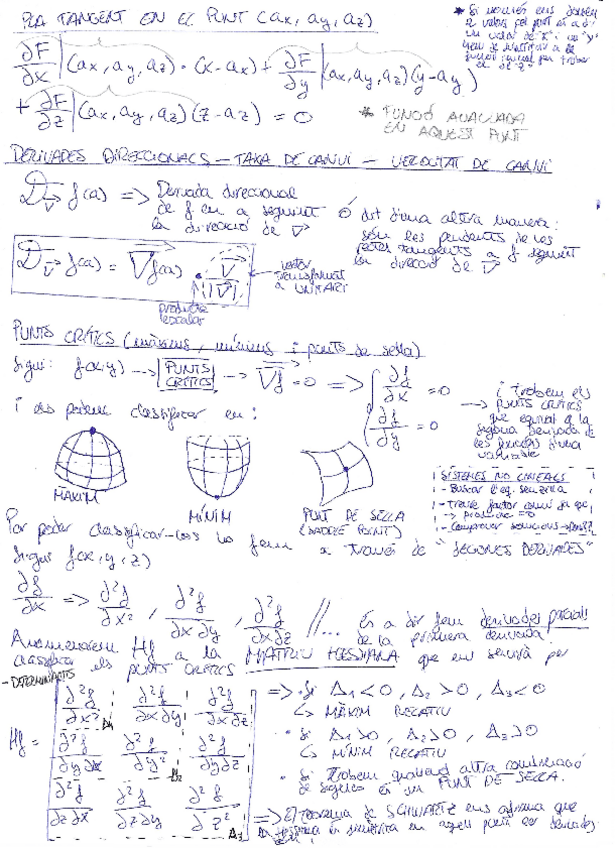 PLA TANGENT EN EL PUNT (ax, ay, az)
∂F/∂x |(ax, ay, az) · (x-ax) + ∂F/∂y |(ax, ay, az)(y-ay)
+ ∂F/∂z |(ax, ay, az)(z-az) = 0
* FUNCIÓ AVALUADA
EN AQUEST PUNT
DERIVADES DIRECCIONALS - TAXA DE CANVI - VELOCITAT DE CANVI
D→v f(a) => Derivada direccional
de f en a seguint
la direcció de v
O dit d'una altra manera:
són les pendents de les
rectes tangents a f seguint
la direcció de v
D→v f(a) = ∇f(a) · v/||v||
vector
transformat
a UNITARI
producte
escalar
PUNTS CRÍTICS (màxims, mínims i punts de sella)
Sigui: f(x,y) → PUNTS CRÍTICS → ∇f = 0 => { ∂f/∂x = 0
∂f/∂y = 0
i trobem els
→ PUNTS CRÍTICS
que equival a la
derivada de
les funcions d'una
variable
i els podem classificar en:
MÀXIM
MÍNIM
PUNT DE SELLA
(SADDLE POINT)
SISTEMES NO LINEALS
- Buscar l'eq. senzilla
- Treure factor comú
→ producte = 0
- Comprovar solucions
Per poder classificar-los ho fem a través de "SEGONES DERIVADES"
Sigui f(x, y, z)
∂f/∂x => ∂²f/∂x², ∂²f/∂x∂y, ∂²f/∂x∂z //... És a dir fem derivades parcials
de la primera derivada.
Anomenarem Hf a la MATRIU HESSIANA que ens servirà per
classificar els PUNTS CRÍTICS
- DETERMINANTS
Hf = ∂²f/∂x² ∂²f/∂x∂y ∂²f/∂x∂z
∂²f/∂y∂x ∂²f/∂y² ∂²f/∂y∂z
∂²f/∂z∂x ∂²f/∂z∂y ∂²f/∂z²
Δ1
Δ2
Δ3
=> · Si Δ1<0, Δ2>0, Δ3<0
↳ MÀXIM RELATIU
· Si Δ1>0, Δ2>0, Δ3>0
↳ MÍNIM RELATIU
· Si trobem qualsevol altra combinació
de signes és un PUNT DE SELLA.
=> El teorema de SCHWARTZ ens afirma que